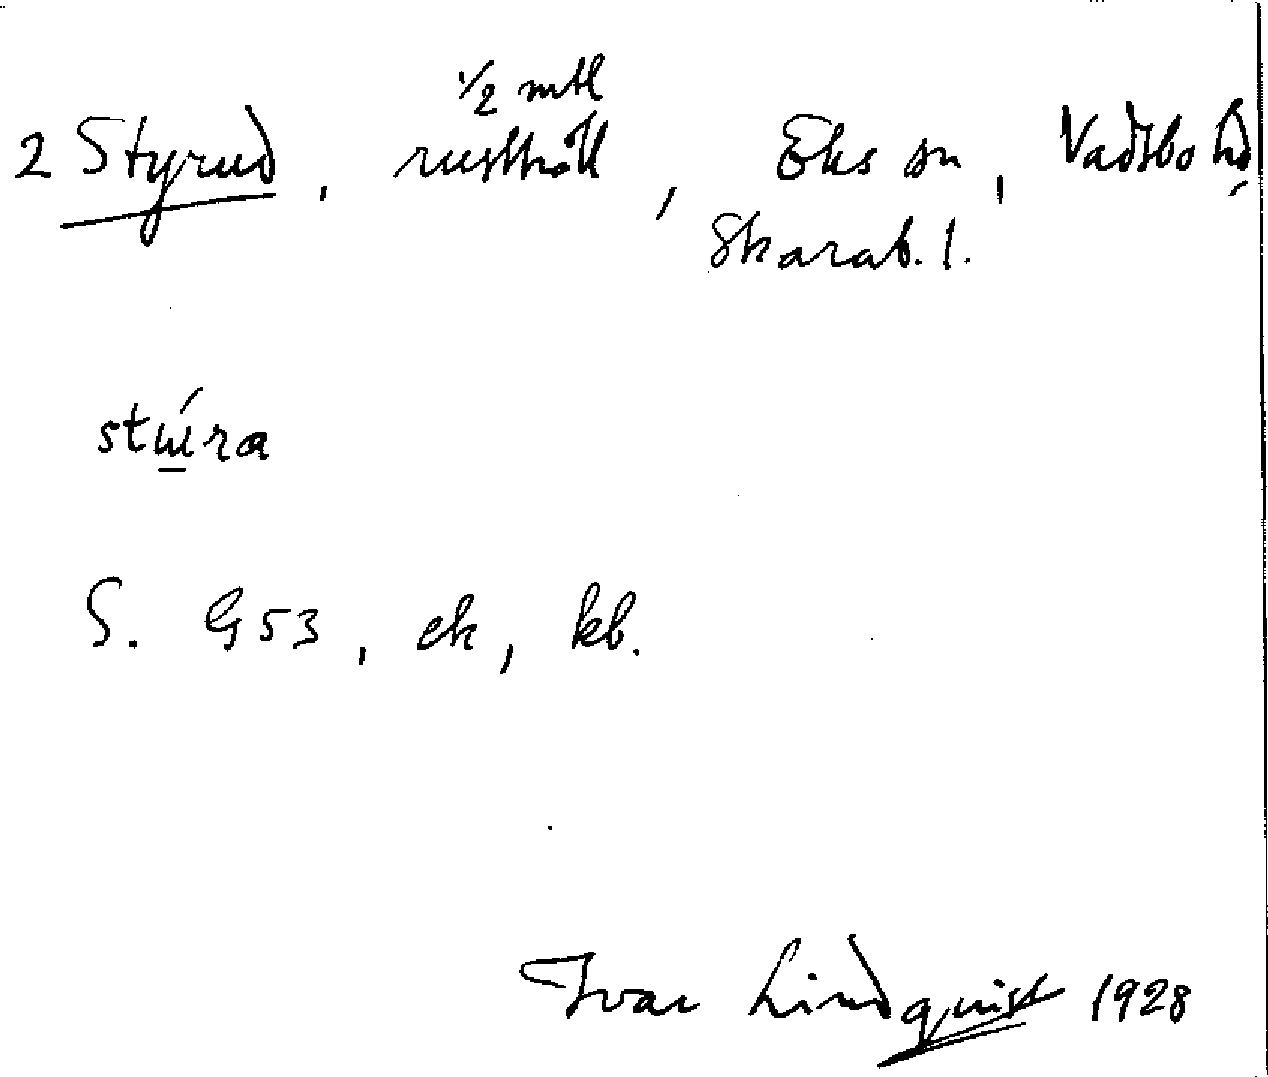 ½ mtl
2 Styrud, rusthåll, Eks sn, Vadsbo hd,
Skarab. l.
stɯ́ra
S. G53, ek, kb.
Ivar Lindquist 1928